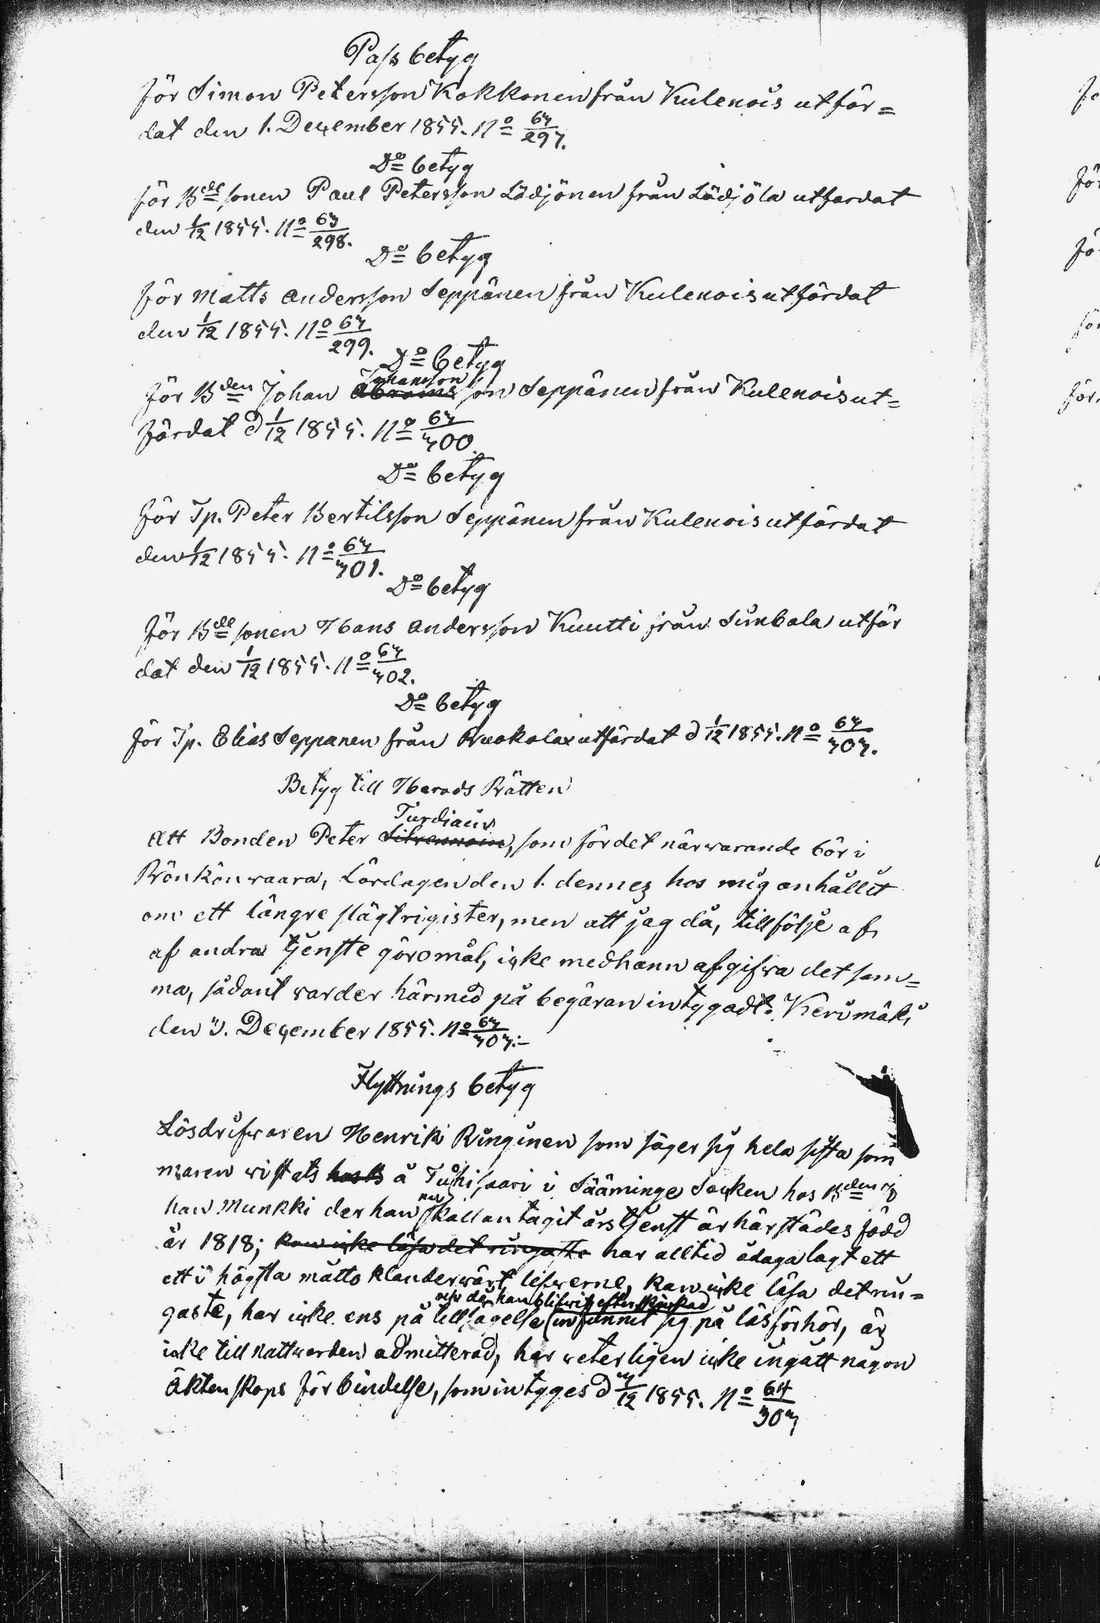 Pass betyg
för Simon Petersson Kokkonen från Kulenois utfär=
dat den 1. December 1855. No 64/297.
Do betyg
för Bde sonen Paul Petersson Lädjönen från Lädjöla utfärdat
den 1/12 1855. No 64/298.
Do betyg
för Matts Andersson Seppänen från Kulenois utfärdat
den 1/12 1855. No 64/299.
Do betyg
för Bden Johan Johansson Seppänen från Kulenois ut=
färdat d 1/12 1855. No 64/300.
Do betyg
för Tp. Peter Bertilsson Seppänen från Kulenois utfärdat
den 1/12 1855. No 64/301.
Do betyg
för Bde sonen Hans Andersson Kuutti från Simbala utfär
dat den 1/12 1855. No 64/302.
Do betyg
för Tp. Elias Seppänen från Ruokolax utfärdat d 1/12 1855. No 64/303.
Betyg till Härads Rätten
Turdiain
Att Bonden Peter, som för det närwarande bor i
Rönkönwaara, Lördagen den 1. dennes hos mig anhållit
om ett längre slägtrigister, men att jag då, tillfölje af
af andra tjenste göromål, icke medhann afgifwa detsam=
ma, sådant warder härmed på begäran intygadt. Kerimäki
den 3. December 1855. No 64/303.
Flyttnings betyg
Lösdrifwaren Henrik Ringinen som säger sig hela sista som
maren wistats hos å Tuhisaari i Sääminge Socken hos Bden
han Munkki der han nu skall antagit årstjenst är härstädes född
år 1818; kan icke läsa det ringaste har alltid ådagalagt ett
ett i högsta måtto klanderwärt lefwerne, kan icke läsa det rin=
gaste, har icke ens på tillsägelse infunnit sig på läsförhör, är
icke till nattwarden admitterad, har weterligen icke ingått någon
Äktenskaps förbindelse, som intyges d 3/12 1855. No 64/303